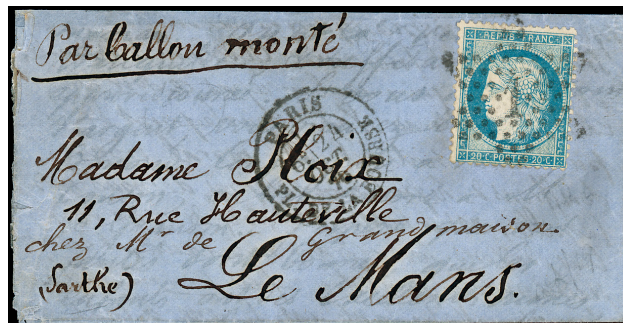 Par Ballon monté
REPUB. FRANC.
20 C. POSTES 20 C.
1
PARIS
PL. DE LA BOURSE
24
Madame Ploix
11, Rue Hauteville
chez Mr de Grandmaison
(Sarthe) Le Mans.